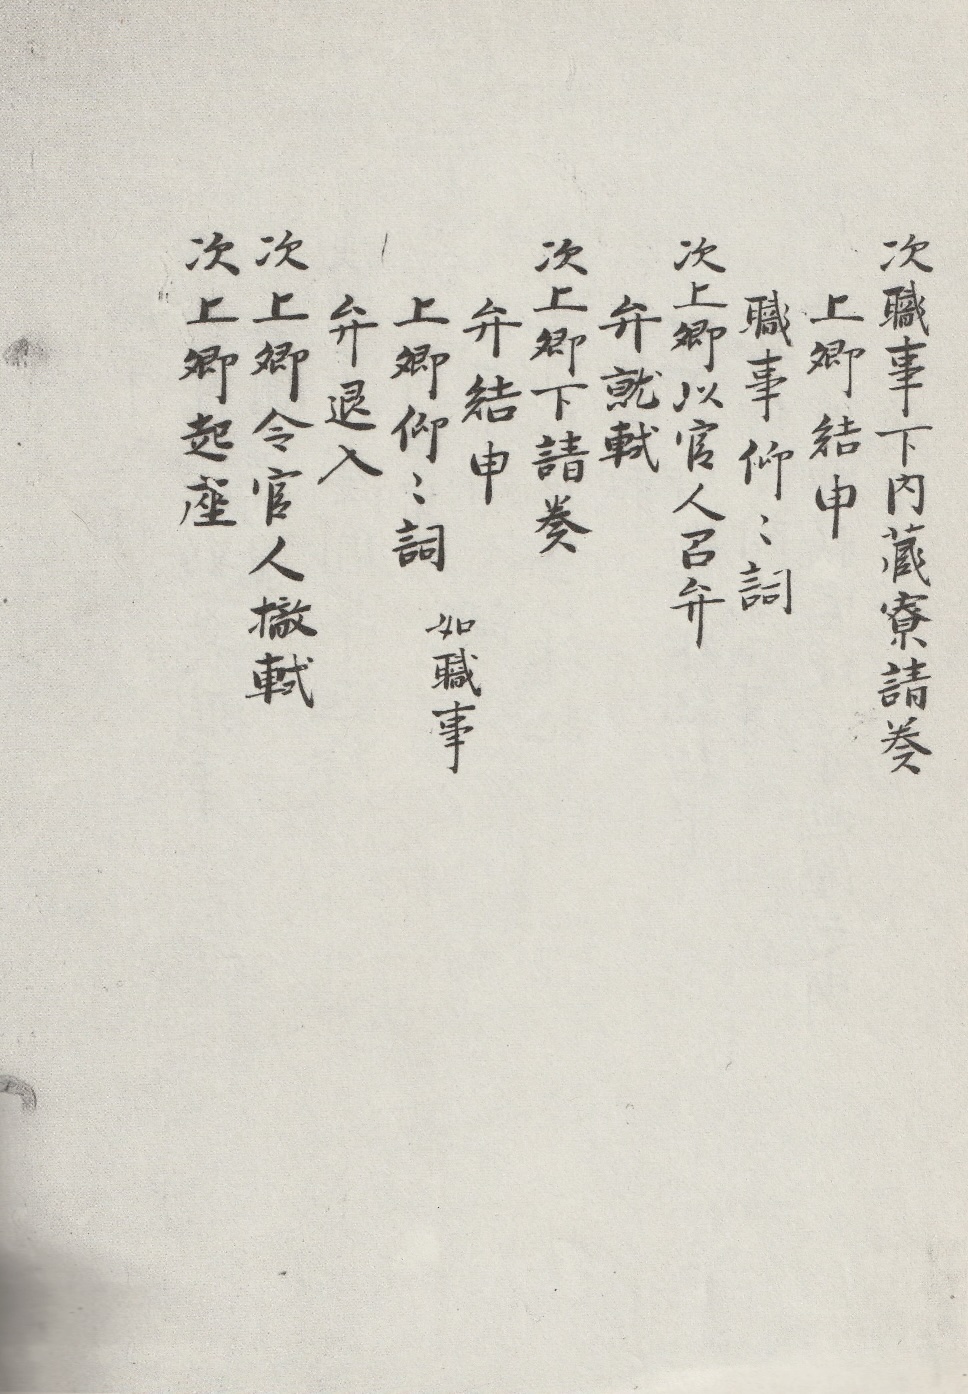 次職事下内蔵寮請奏
上卿結申
職事仰〻詞
次上卿以官人召弁
弁就軾
次上卿下請奏
弁結申
上卿仰〻詞 如職事
弁退入
次上卿令官人撤軾
次上卿起座